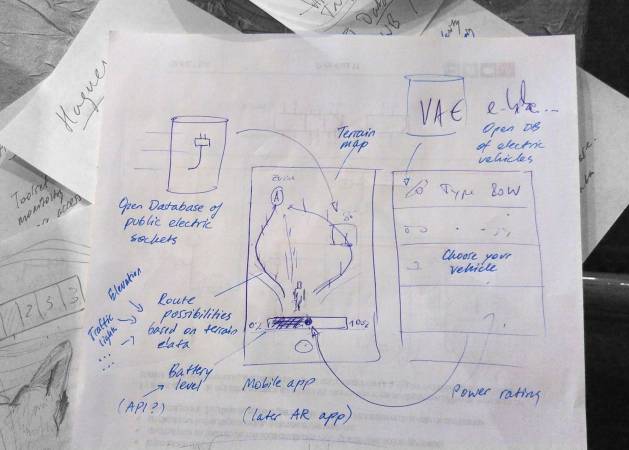 VAE
e-bike...
Open DB
of electric
vehicles
Terrain
map
Open Database of
public electric
sockets
Zurich
A
Type 80W
Choose your
vehicle
Elevation
Traffic
light
...
Route
possibilities
based on terrain
data
0%
100%
Battery
level
(API?)
Mobile app
(later AR app)
Power rating
Hague
Toolset
1 2 3 3